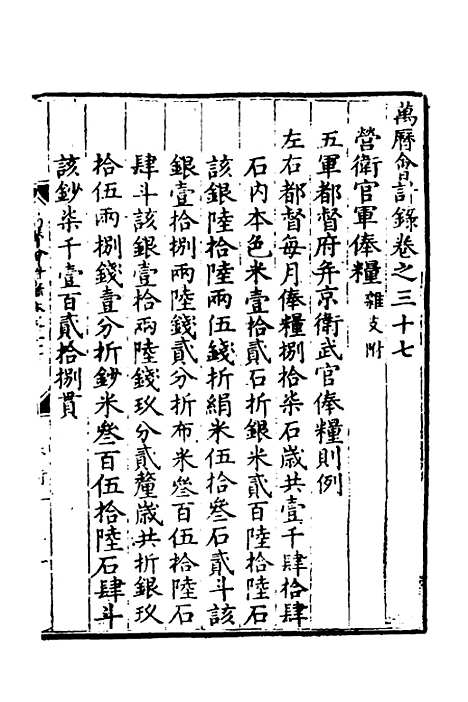 萬曆會計錄卷之三十七
營衛官軍俸糧雜支附
五軍都督府并京衛武官俸糧則例
左右都督每月俸糧捌拾柒石歲共壹千肆拾肆
石內本色米壹拾貳石折銀米貳百陸拾陸石
該銀陸拾陸兩伍錢折絹米伍拾叄石貳斗該
銀壹拾捌兩陸錢貳分折布米叄百伍拾陸石
肆斗該銀壹拾兩陸錢玖分貳釐歲共折銀玖
拾伍兩捌錢壹分折鈔米叄百伍拾陸石肆斗
該鈔柒千壹百貳拾捌貫